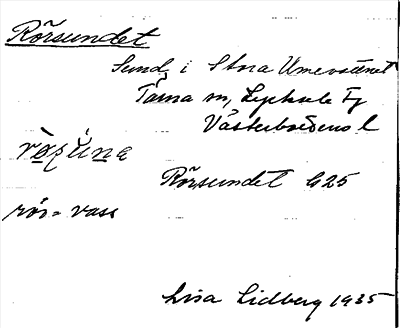 Rörsundet
Sund i Stora Umevattnet
Tärna sn, Lycksele Fj
Västerbottens l
Rörsundet G25
rör = vass
Lisa Lidberg 1935